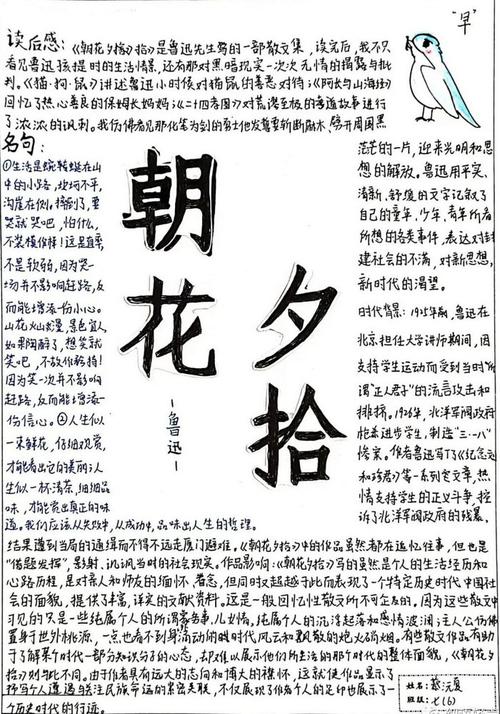 "早"
读后感:《朝花夕拾》拾》是鲁迅先生写的一部散文集,读完后,我不只
看见鲁迅孩提时的生活情景,还有那对黑暗现实一次次无情的揭露与批
判。《猫·狗·鼠》讲述鲁迅小时候对猫鼠的善恶对待;《阿长与山海经》
回忆了热心善良的保姆长妈妈;《二十四孝图》对荒谬至极的孝道故事进行
了浓浓的讽刺。我仿佛看见那化笔为剑的勇士他发誓要斩断敌木,劈开周围黑
茫茫的一片,迎来光明和思
想的解放。鲁迅用平实、
清新、舒缓的文字记叙了
自己的童年、少年、青年所看
所想的各类事件,表达对封
建社会的不满,对新思想,
新时代的渴望。
名句:
①生活是蜿转蜒在山
中的小路,坎坷不平,
沟崖在侧。摔倒了,要
哭就哭吧,怕什么,
不装模作样!这是直率,
不是软弱,因为哭一
场并不影响赶路,反
而能增添一份小心。
山花火山烂漫,景色宜人,
如果陶醉了,想笑就
笑吧,不故作矜持!
因为笑一次并不影响
赶路,反而能增添一
份信心。②人生似
一束鲜花,仔细观赏,
才能看出它的美丽;人
生似一杯清茶,细细品
味,才能赏出真正的味
道。我们应该从失败中,从成功中,品味出人生的哲理。
朝花夕拾
-鲁迅-
时代背景:1925年前,鲁迅在
北京担任大学讲师期间,因
支持学生运动而受到当时"所
谓"正人君子"的流言攻击和
排挤。1926年,北洋军阀政府
枪杀进步学生,制造"三·一八"
惨案。作者鲁迅写了《纪念刘
和珍君》等一系列文章,热
情支持学生的正义斗争,控
诉了北洋军阀政府的残暴。
结果遭到当局的通缉而不得不远走厦门避难。《朝花夕拾》中的作品虽然都在追忆往事,但也是
"借题发挥",影射、讥讽当时的社会现实。作品影响:《朝花夕拾》写的虽然是个人的生活经历和
心路历程,是对亲人和师友的缅怀、眷念,但同时又超越于此而表现了一个特定历史时代中国社
会的面貌,提供了丰富,详实的文献资料。这是一般回忆性散文所不可企及的。因为这些散文中
可见的只是一些纯属个人的所谓轶事、儿女情,纯属个人的沉浮起落和感情波澜;主人公仿佛
置身于世外桃源,一点也看不到身旁流动的时代风云和飘散的炮火硝烟。有些散文作品有助
于了解某个时代一部分知识分子的心态,却难以展示他们所生活的那个时代的整体面貌,《朝花夕
拾》则与此不同。由于作者具有远大的志向和博大的襟怀,这就使作品显示了
抒写个人遭遇与关注民族命运的紧密关联,不仅展现了作者个人的足印也展示了一
个历史时代的行迹。
姓名:
班级:七(6)